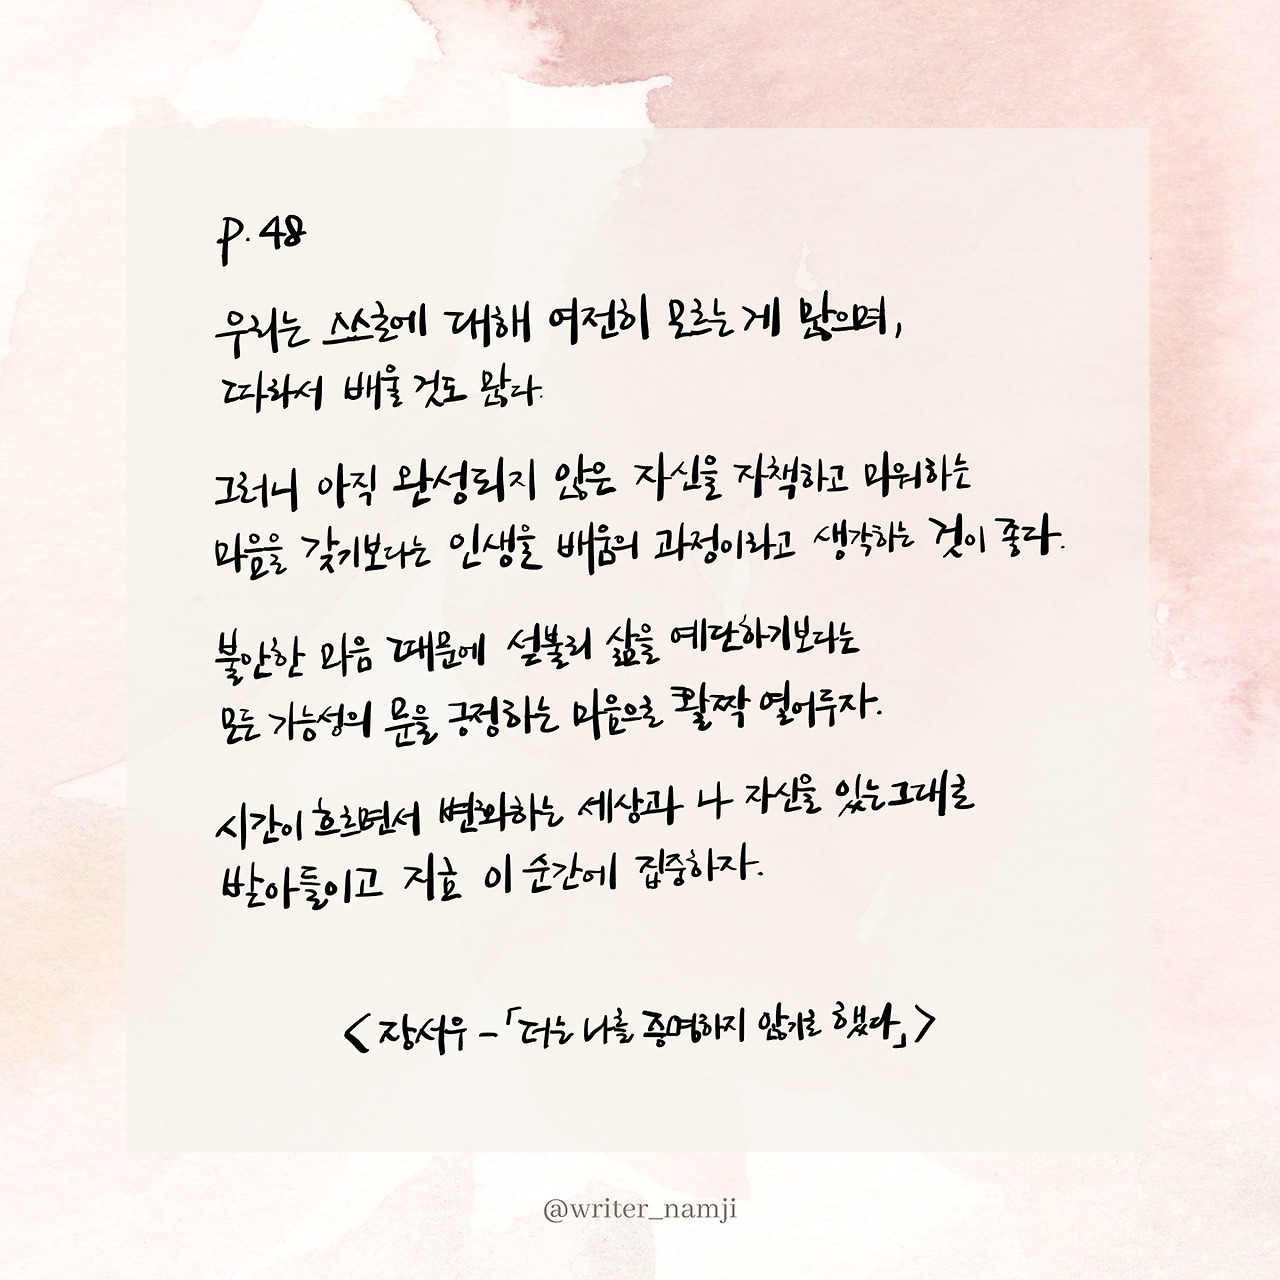 P. 48
우리는 스스로에 대해 여전히 모르는 게 많으며,
따라서 배울 것도 많다.
그러니 아직 완성되지 않은 자신을 자책하고 미워하는
마음을 갖기보다는 인생을 배움의 과정이라고 생각하는 것이 좋다.
불안한 마음 때문에 섣불리 삶을 예단하기보다는
모든 가능성의 문을 긍정하는 마음으로 활짝 열어두자.
시간이 흐르면서 변화하는 세상과 나 자신을 있는그대로
받아들이고 지효 이 순간에 집중하자.
<장서우 -「더는 나를 증명하지 않기로 했다」>
@writer_namji